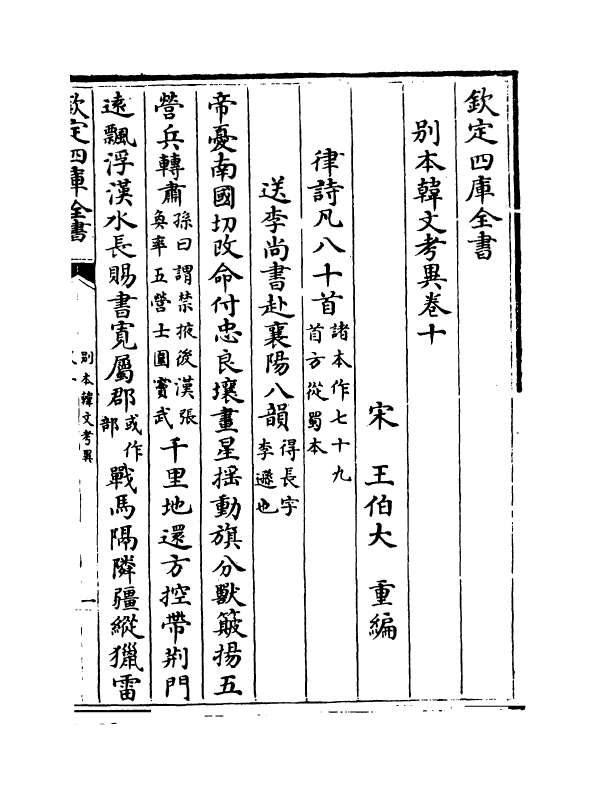 欽定四庫全書
別本韓文考異卷十
宋　王伯大　重編
律詩凡八十首諸本作七十九首方從蜀本
送李尚書赴襄陽八韻得長字李遜也
帝憂南國切改命付忠良壤畫星揺動旗分獸簸揚五
營兵轉肅孫曰謂禁掖後漢張奐率五營士圍竇武千里地還方控帶荆門
逺飄浮漢水長賜書寛屬郡或作部戰馬隔隣疆縱獵雷
欽定四庫全書
別本韓文考異
一